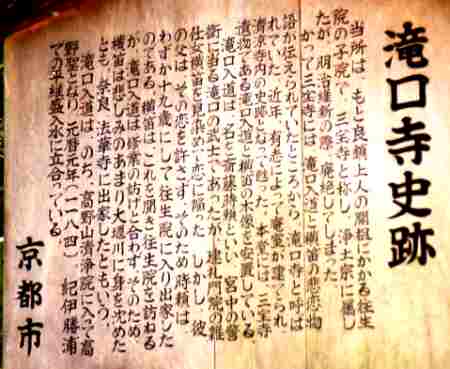 滝口寺史跡
当所は、もと良鎮上人の開祖にかかる往生
院の子院で、三宝寺と称し、浄土宗に属し
たが、明治維新の際、廃絶してしまった。
かつて三宝寺には、滝口入道と横笛の悲恋物
語が伝えられていたところから、滝口寺と呼ば
れていた。近年、有志によって庵室が建てられ、
清凉寺内の史跡となって甦った。本堂には、三宝寺
遺物である滝口入道と横笛の木像を安置している。
滝口入道は、名を斎藤時頼といい、宮中の警
衛に当る滝口の武士であったが、建礼門院の雑
仕女横笛を見染めて恋に陥った。しかし、彼
の父は、その恋を許さず、そのため時頼は、
わずか十九歳にして往生院に入り出家した
のである。横笛は、これを聞き往生院を訪ねる
が、滝口入道は修業の妨げと合わず、そのため
横笛は悲しみのあまり大堰川に身を沈めた
とも、奈良、法華寺に出家したともいう。
滝口入道は、のち、高野山清浄院に入って高
野聖となり、元暦元年(一一八四)、紀伊勝浦
での平維盛入水に立合っている。
京都市